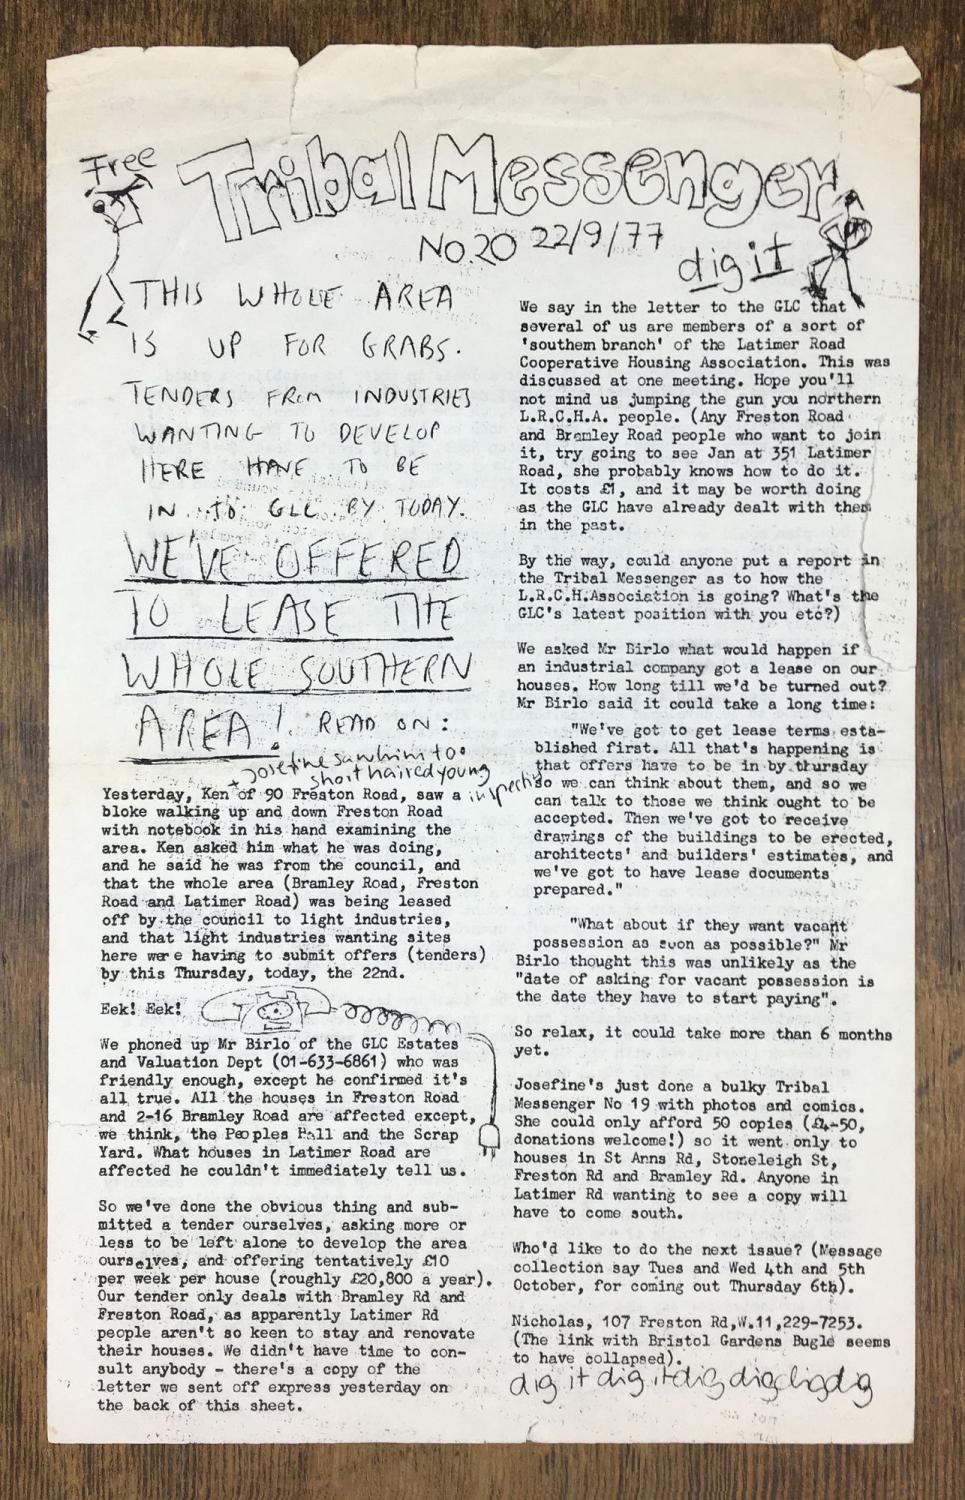 Free
Tribal Messenger
No.20 22/9/77
dig it
THIS WHOLE AREA
IS UP FOR GRABS.
TENDERS FROM INDUSTRIES
WANTING TO DEVELOP
HERE HAVE TO BE
IN TO GLC BY TODAY.
WE'VE OFFERED
TO LEASE THE
WHOLE SOUTHERN
AREA! READ ON:
+ Josefine saw him too
short haired young
Yesterday, Ken of 90 Freston Road, saw a
bloke walking up and down Freston Road
with notebook in his hand examining the
area. Ken asked him what he was doing,
and he said he was from the council, and
that the whole area (Bramley Road, Freston
Road and Latimer Road) was being leased
off by the council to light industries,
and that light industries wanting sites
here were having to submit offers (tenders)
by this Thursday, today, the 22nd.
Eek! Eek!
We phoned up Mr Birlo of the GLC Estates
and Valuation Dept (01-633-6861) who was
friendly enough, except he confirmed it's
all true. All the houses in Freston Road
and 2-16 Bramley Road are affected except,
we think, the Peoples Hall and the Scrap
Yard. What houses in Latimer Road are
affected he couldn't immediately tell us.
So we've done the obvious thing and sub-
mitted a tender ourselves, asking more or
less to be left alone to develop the area
ourselves, and offering tentatively £10
per week per house (roughly £20,800 a year).
Our tender only deals with Bramley Rd and
Freston Road, as apparently Latimer Rd
people aren't so keen to stay and renovate
their houses. We didn't have time to con-
sult anybody - there's a copy of the
letter we sent off express yesterday on
the back of this sheet.
We say in the letter to the GLC that
several of us are members of a sort of
'southern branch' of the Latimer Road
Cooperative Housing Association. This was
discussed at one meeting. Hope you'll
not mind us jumping the gun you northern
L.R.C.H.A. people. (Any Freston Road
and Bramley Road people who want to join
it, try going to see Jan at 351 Latimer
Road, she probably knows how to do it.
It costs £1, and it may be worth doing
as the GLC have already dealt with them
in the past.
By the way, could anyone put a report in
the Tribal Messenger as to how the
L.R.C.H.Association is going? What's the
GLC's latest position with you etc?)
We asked Mr Birlo what would happen if
an industrial company got a lease on our
houses. How long till we'd be turned out?
Mr Birlo said it could take a long time:
"We've got to get lease terms esta-
blished first. All that's happening is
that offers have to be in by thursday
so we can think about them, and so we
can talk to those we think ought to be
accepted. Then we've got to receive
drawings of the buildings to be erected,
architects' and builders' estimates, and
we've got to have lease documents
prepared."
"What about if they want vacant
possession as soon as possible?" Mr
Birlo thought this was unlikely as the
"date of asking for vacant possession is
the date they have to start paying".
So relax, it could take more than 6 months
yet.
Josefine's just done a bulky Tribal
Messenger No 19 with photos and comics.
She could only afford 50 copies (£4-50,
donations welcome!) so it went only to
houses in St Anns Rd, Stoneleigh St,
Freston Rd and Bramley Rd. Anyone in
Latimer Rd wanting to see a copy will
have to come south.
Who'd like to do the next issue? (Message
collection say Tues and Wed 4th and 5th
October, for coming out Thursday 6th).
Nicholas, 107 Freston Rd,W.11,229-7253.
(The link with Bristol Gardens Bugle seems
to have collapsed).
dig it dig it dig dig dig dig